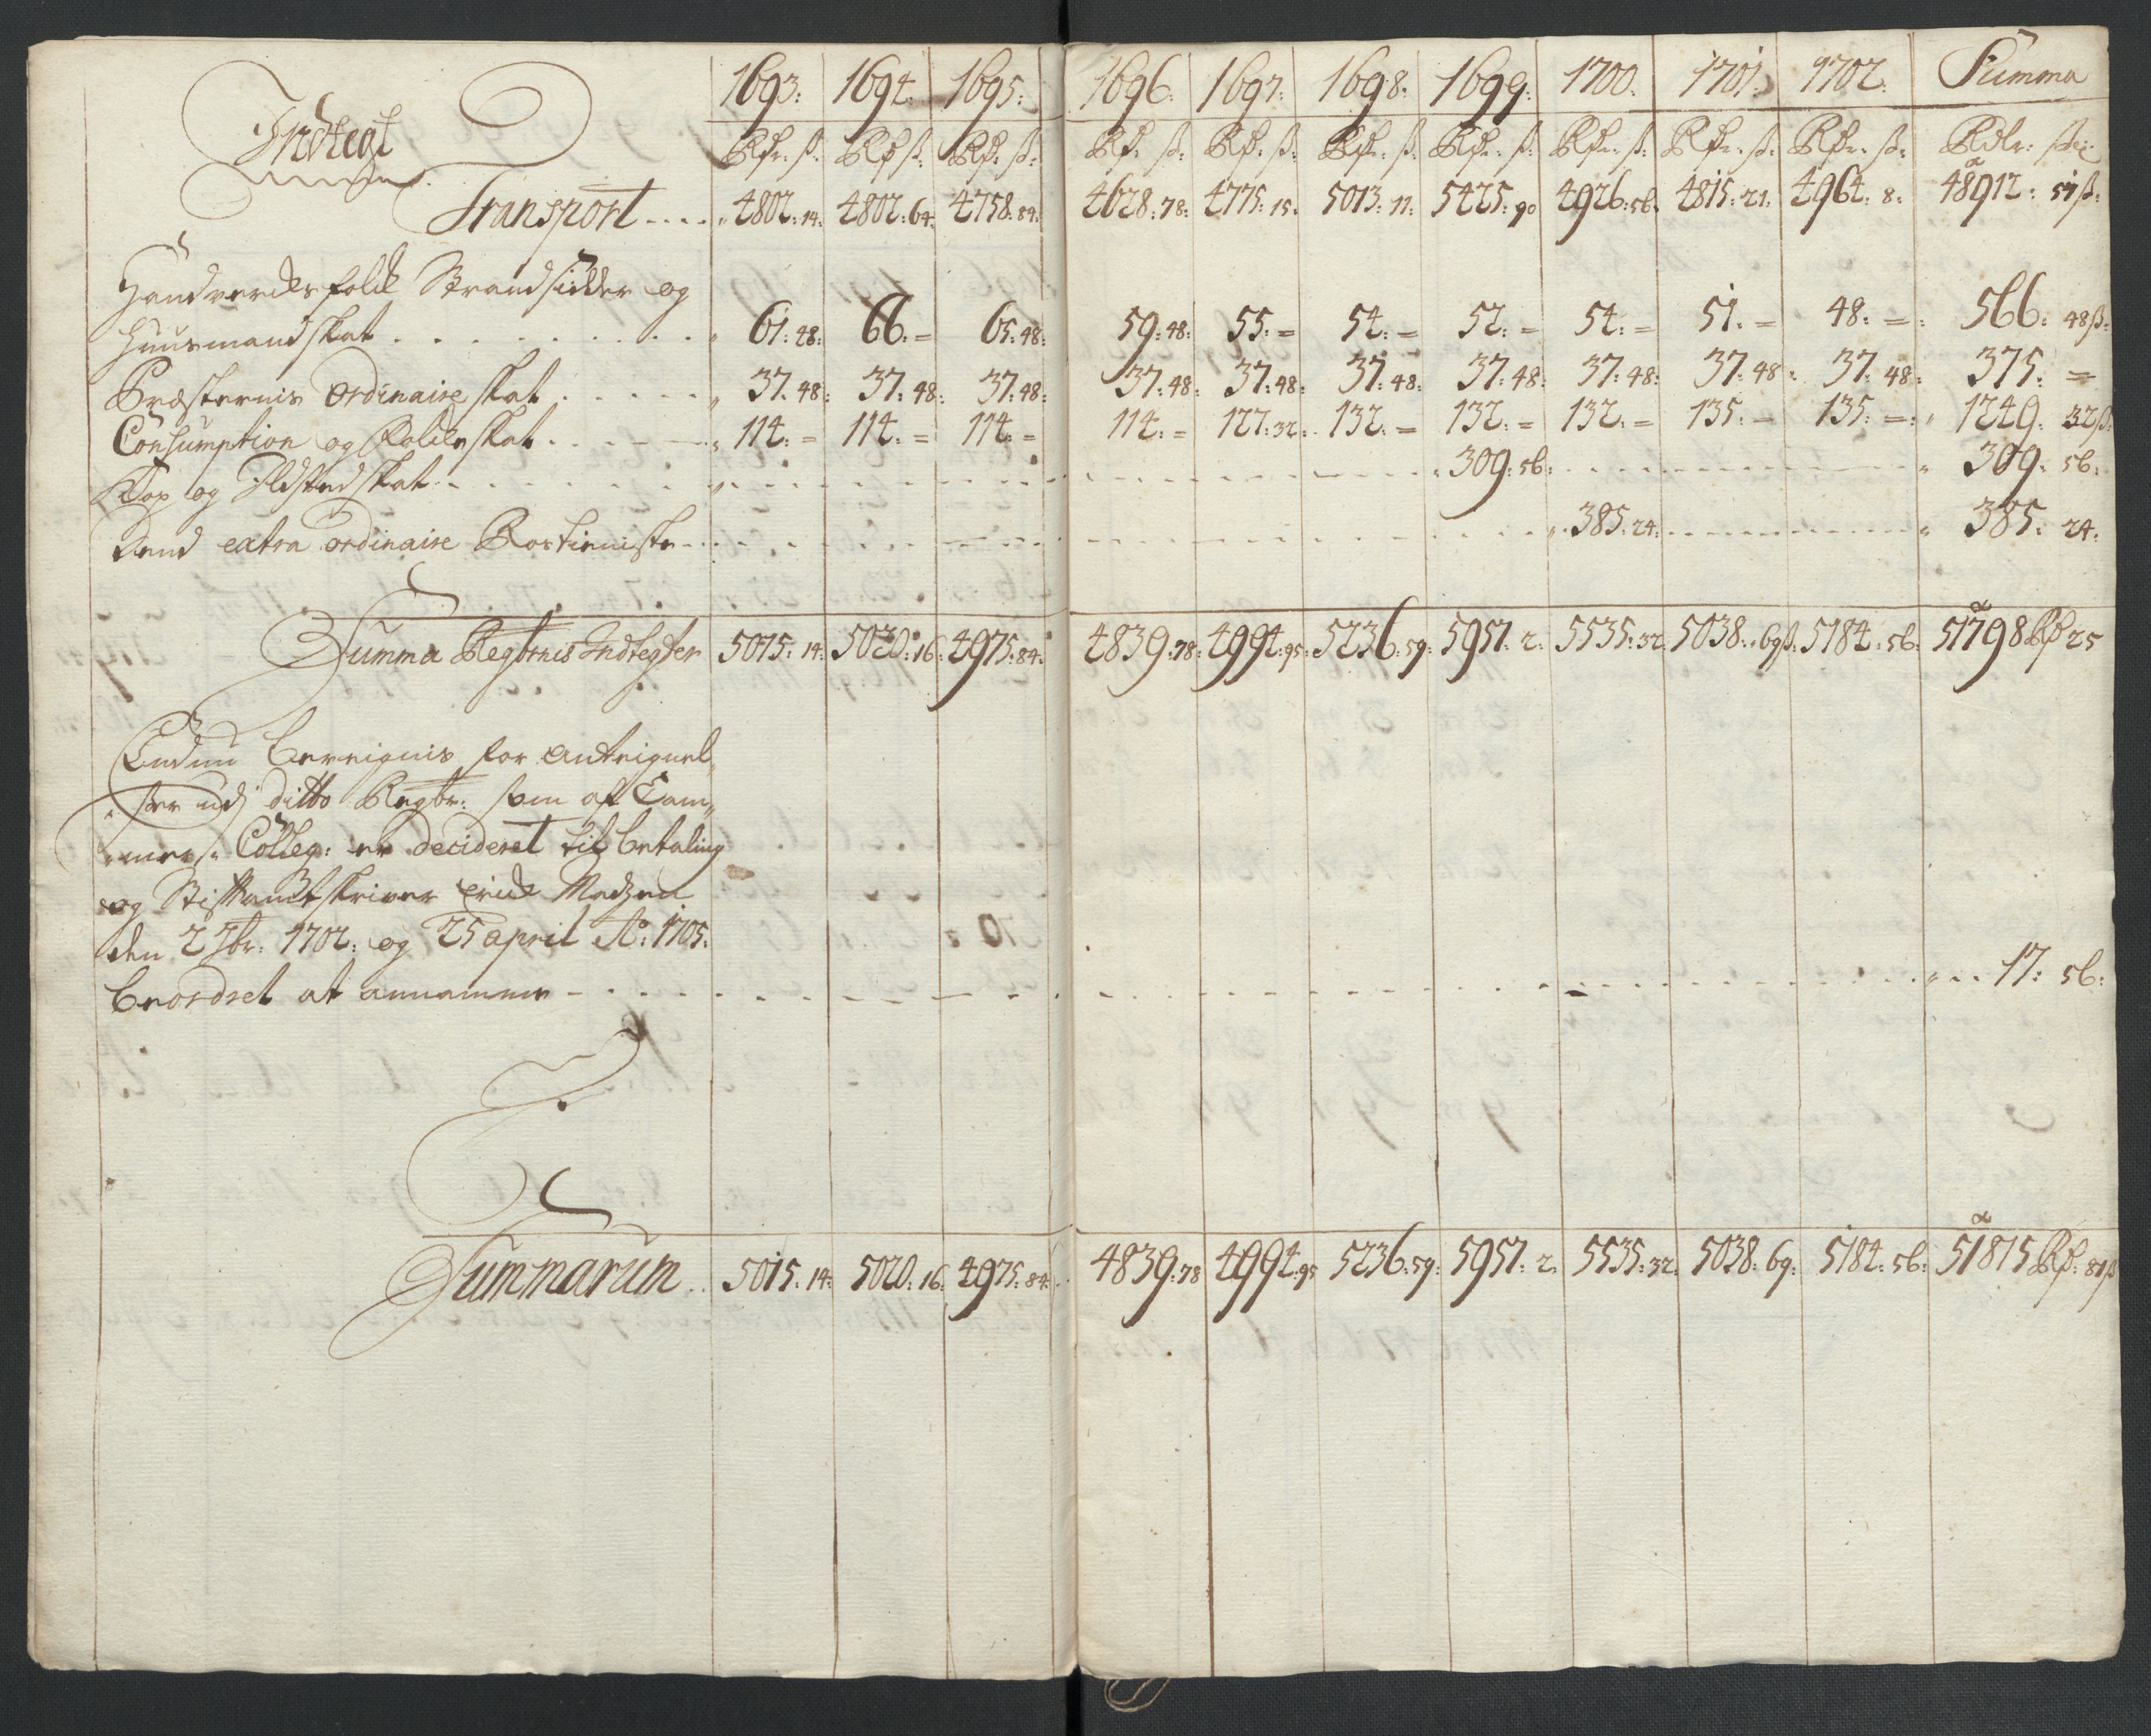 Indtegt 1693: 1694: 1695: 1696: 1697: 1698: 1699: 1700. 1701: 1702: Summa
Rdr. ß: Rd ß: Rd. ß: Rd. ß: Rd. ß: Rdr. ß: Rdr. ß: Rdr. ß: Rdr. ß: Rdr. ß: Rdlr: ß
Transport . . . . 4802: 14: 4802: 64: 4758: 84: 4628: 78: 4775: 15. 5013: 11: 5425: 90 4926: 56. 4815: 21: 4964: 8: 48912: 51ß:
Handverksfolck Strandsidder og
Huusmandskat . . . . . . . . 61: 48: 66: = 65: 48: 59: 48: 55: = 54: = 52: = 54: = 51: = 48: = 566: 48ß:
Præsternis Ordinaire skat . . . . . 37: 48: 37: 48: 37: 48: 37: 48: 37: 48: 37: 48: 37: 48: 37: 48: 37: 48: 37: 48: 375: =
Consumption og Folkeskat . . . . . 114: = 114: = 114: = 114: = 127: 32: 132: = 132: = 132: = 135: = 135: = 1249: 32ß:
Kop og Ildstedskat . . . . . . 309: 56: 309: 56:
Dend extra ordinaire Rostieniste . . 385: 24: 385: 24:
Summa Regtbrnis Indtegter 5015: 14: 5020: 16: 4975: 84: 4839: 78: 4994: 95: 5236: 59: 5951: 2: 5535: 32 5038: 69ß: 5184: 56: 51798 Rd 25
Endnu beregnis for Anteignel„
„ser udj ditto Regtbr: som af Cam„
„mer: Colleg: er decideret til betaling
og Stiftamtskriver Erick Madzen
den 2 7br: 1702: og 25 april Ao: 1705:
beordret at annamme - . . . . 17: 56:
Summarum . . 5015: 14: 5020: 16: 4975: 84: 4839: 78 4994: 95 5236: 59: 5951: 2: 5535: 32. 5038: 69: 5184: 56: 51815 Rd: 81ß